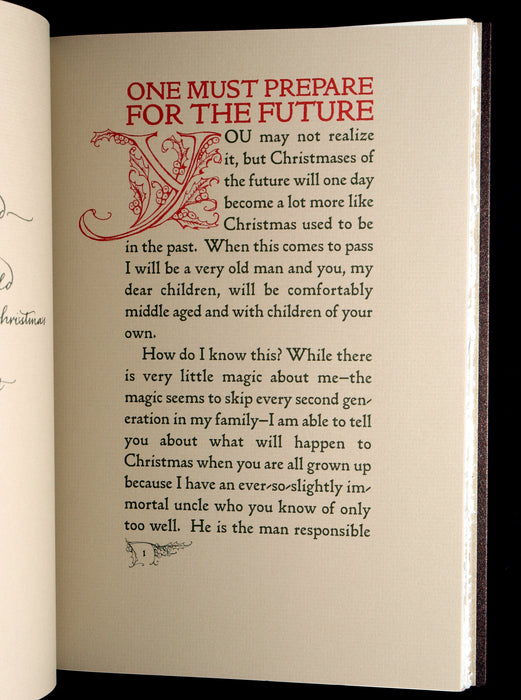 ONE MUST PREPARE
FOR THE FUTURE
YOU may not realize
it, but Christmases of
the future will one day
become a lot more like
Christmas used to be
in the past. When this comes to pass
I will be a very old man and you, my
dear children, will be comfortably
middle aged and with children of your
own.
How do I know this? While there
is very little magic about me—the
magic seems to skip every second gen-
eration in my family—I am able to tell
you about what will happen to
Christmas when you are all grown up
because I have an ever-so-slightly im-
mortal uncle who you know of only
too well. He is the man responsible
1
christmas